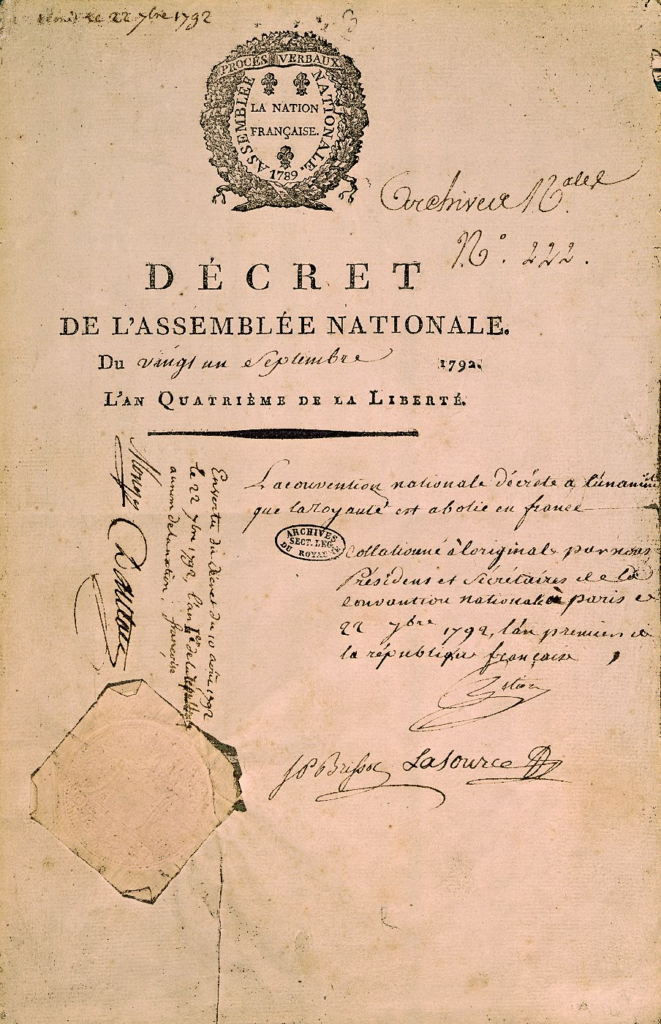 22 7bre 1792
3
PROCÈS VERBAUX
ASSEMBLÉE NATIONALE.
LA NATION
FRANÇAISE.
1789
Archives N.ales
N.° 222.
DÉCRET
DE L'ASSEMBLÉE NATIONALE.
Du vingt un Septembre 1792.
L'AN QUATRIÈME DE LA LIBERTÉ.
La convention nationale décrète a l'unanimité
que la royauté est abolie en france
ARCHIVES
SECT. LEG.
DU ROYAUME
Collationné à loriginal par nous
Présidens et Sécrétaires de la
Convention nationale à paris le
22 7bre 1792, l'an premier de
la république française
JP Brissot Lasource
En vertu du décret du 10 août 1792
le 22 7bre 1792, l'an 1er de la république
au nom de la nation française
Monge
Danton